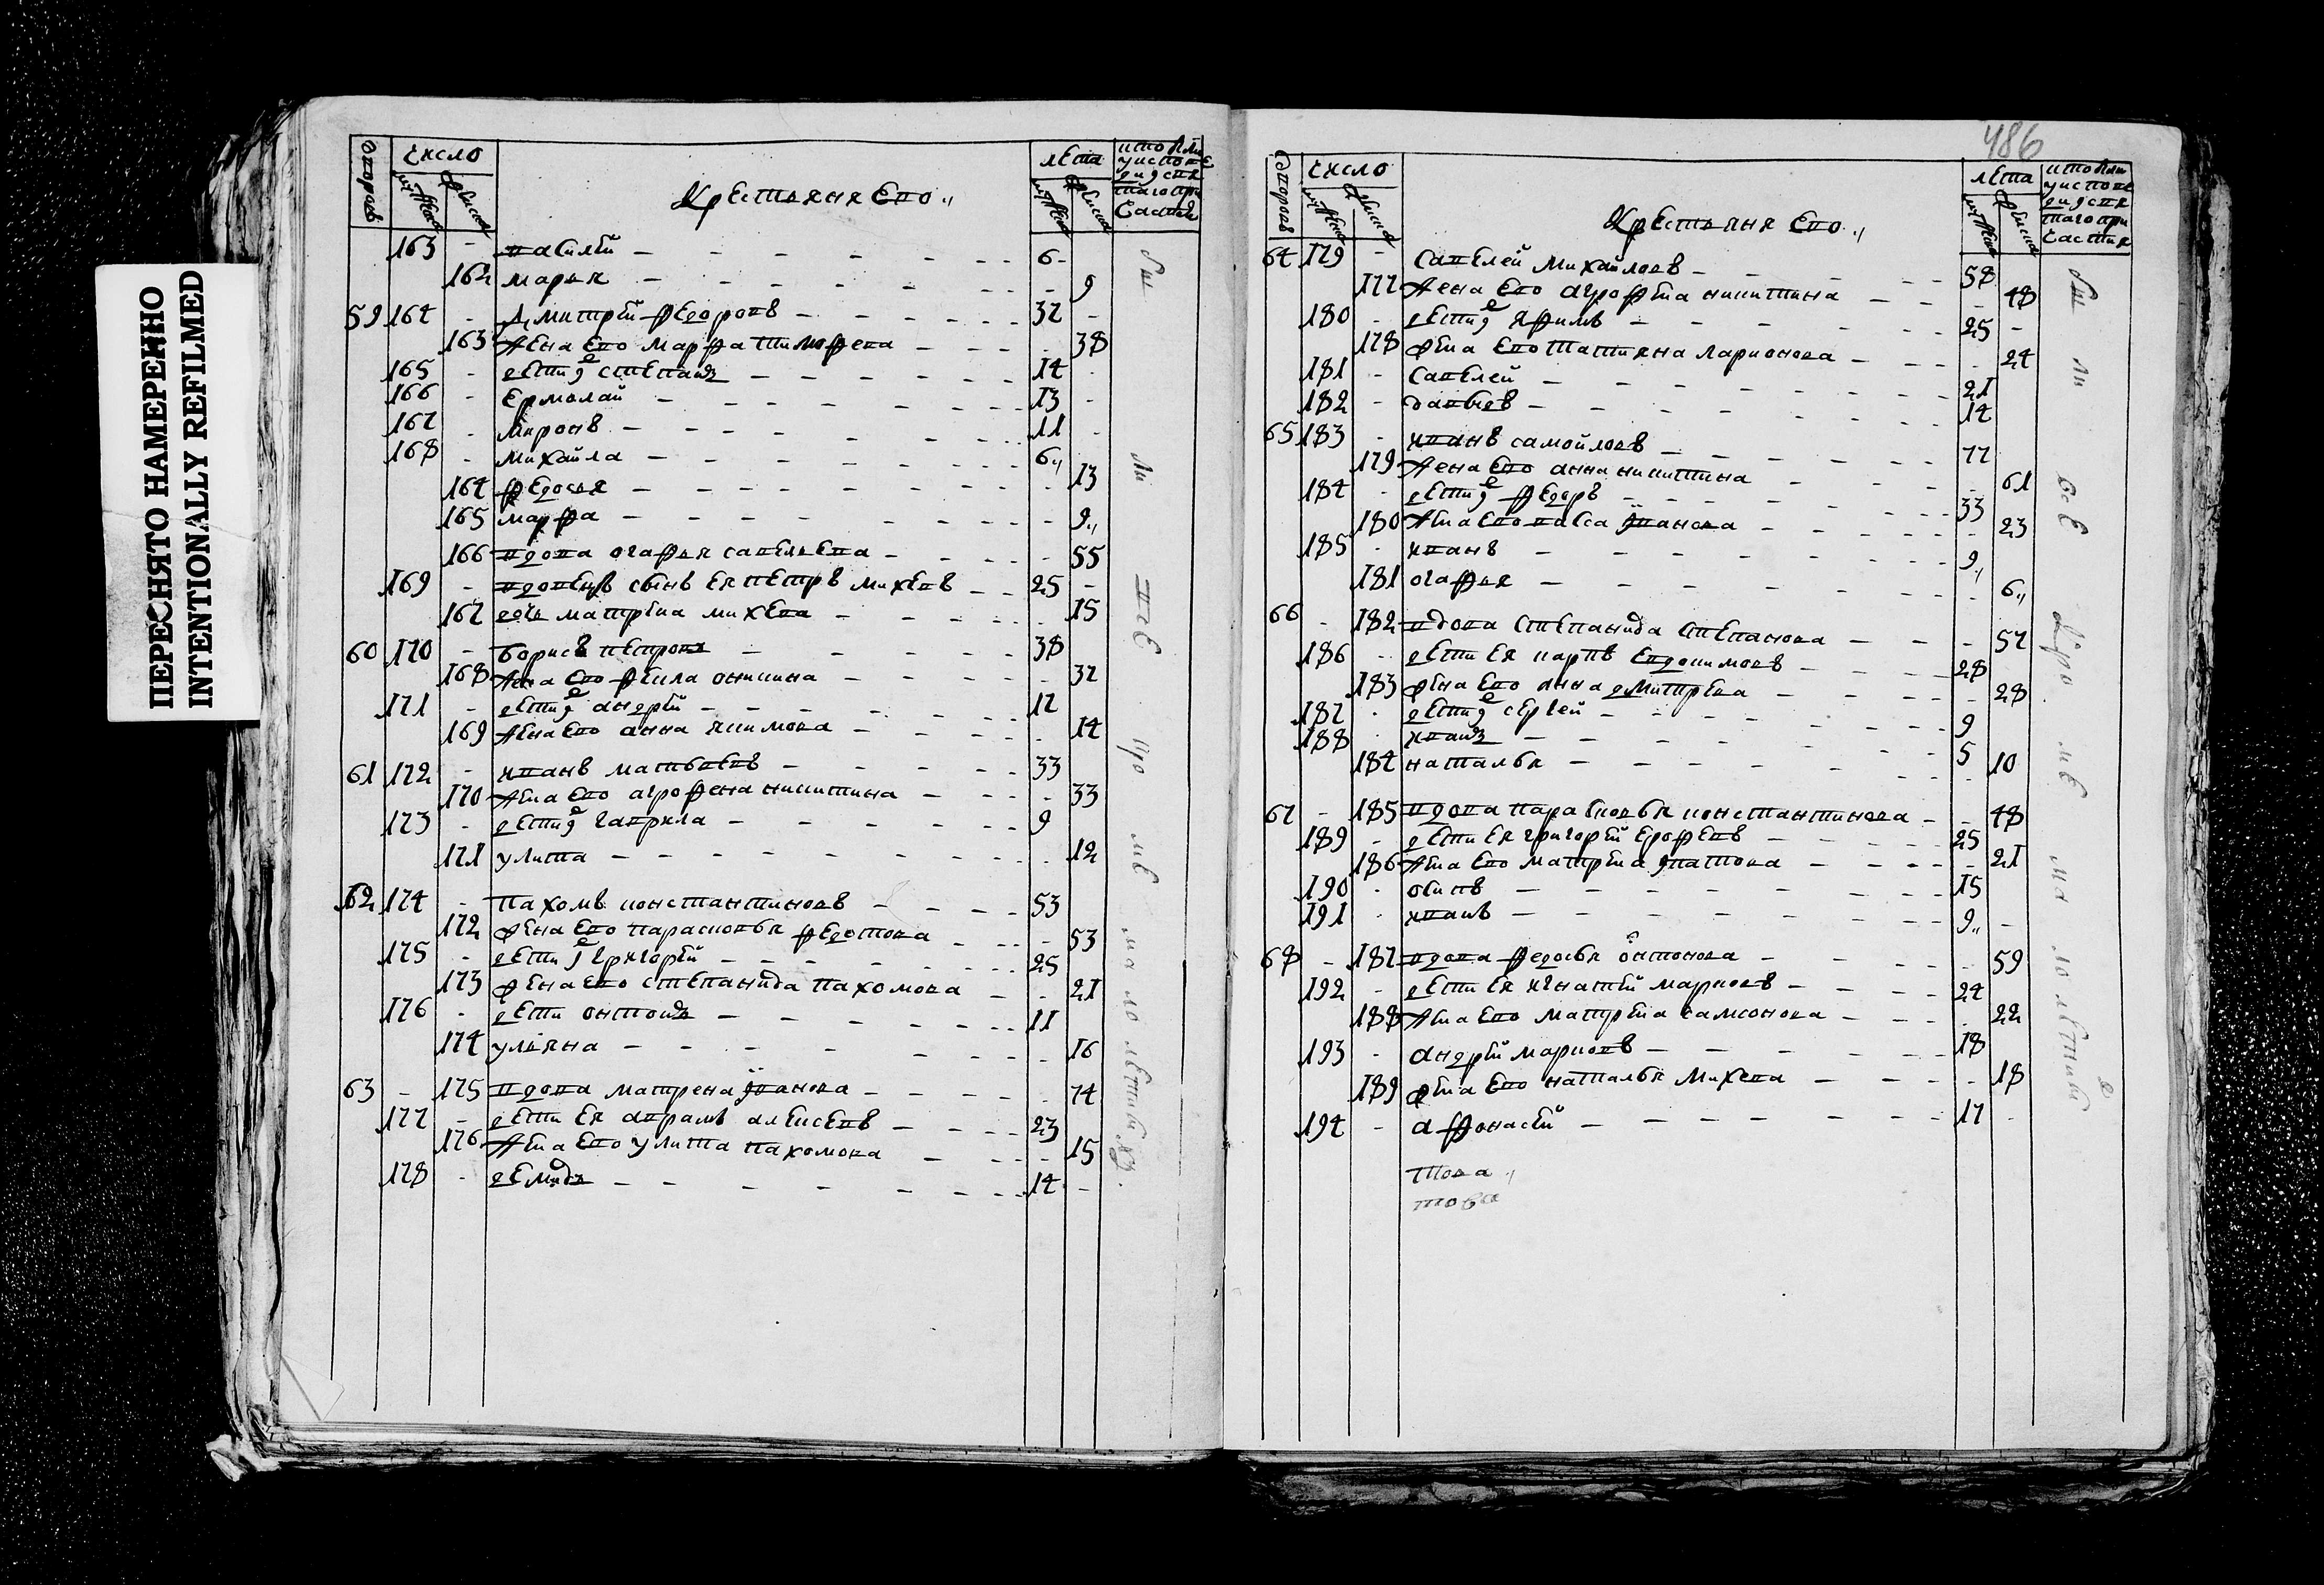 ПЕРЕСНЯТО НАМЕРЕННО
INTENTIONALLY REFILMED
дворовъ
число
мужеска
женска
Крестьяня Ево
лета
мужеска
женска
163 - василей - 6 -
162 марья - 9
59 164 - Дмитрей федоровъ - 37 -
163 Жена ево марфа тимофеева - 38
165 - дети их степанъ - 14
166 - Ермолай - 13 -
167 - миронъ - 11 -
168 - михайла - 6
164 федосья - 13
165 марфа - 9
166 вдова огафья савельева - 55
169 - сынъ ея петръ михеевъ - 25 -
167 дочь матрена михеева - 15
60 170 - борисъ петровъ - 38
168 Жена ево фекла оникина - 37
171 - дети их андрей - 17
169 жена ево анна якимова - 14
61 172 - иванъ матвеевъ - 33
170 Жена ево агрофена никитина - 33
173 - дети их гаврила - 9
171 улита - 12
62 174 - пахомъ константиновъ - 53
172 жена ево парасковья федотова - 53
175 - дети их григорей - 25
173 жена ево степанида пахомова - 21
176 - дети онтонъ - 11
174 ульяна - 16
63 - 175 вдова матрена иванова - 74
177 - дети ея аврамъ алексеевъ - 23
176 жена ево улита пахомова - 15
178 - демидъ - 14 -
486
дворовъ
число
мужеска
женска
Крестьяня Ево
лета
мужеска
женска
64 179 - савелей михайловъ - 58
177 Жена ево агрофена никитина - 48
180 - дети их яфимъ - 25 -
178 жена ево татияна ларионова - 24
181 - савелей - 21
182 - давыдъ - 14
65 183 - иванъ самойловъ - 77
179 Жена ево анна никитина - 61
184 - дети их федоръ - 33
180 жена ево васса иванова - 23
185 - иванъ - 9
181 огафья - 6
66 - 182 вдова степанида степанова - 57
186 - дети ея карпъ евдокимовъ - 28
183 жена ево анна дмитрева - 28
187 - дети их сергей - 9
188 - иванъ - 5
184 наталья - 10
67 - 185 вдова парасковья константинова - 48
189 - дети ея григорей ерофеевъ - 25
186 Жена ево матрена ипатова - 21
190 - осипъ - 15
191 - иванъ - 9 -
68 - 187 вдова федосья онтонова - 59
192 - дети ея игнатей марковъ - 24
188 жена ево матрена самсонова - 22
193 - андрей марковъ - 18
189 жена ево наталья михеева - 18
194 - афонасей - 17 -
това
това